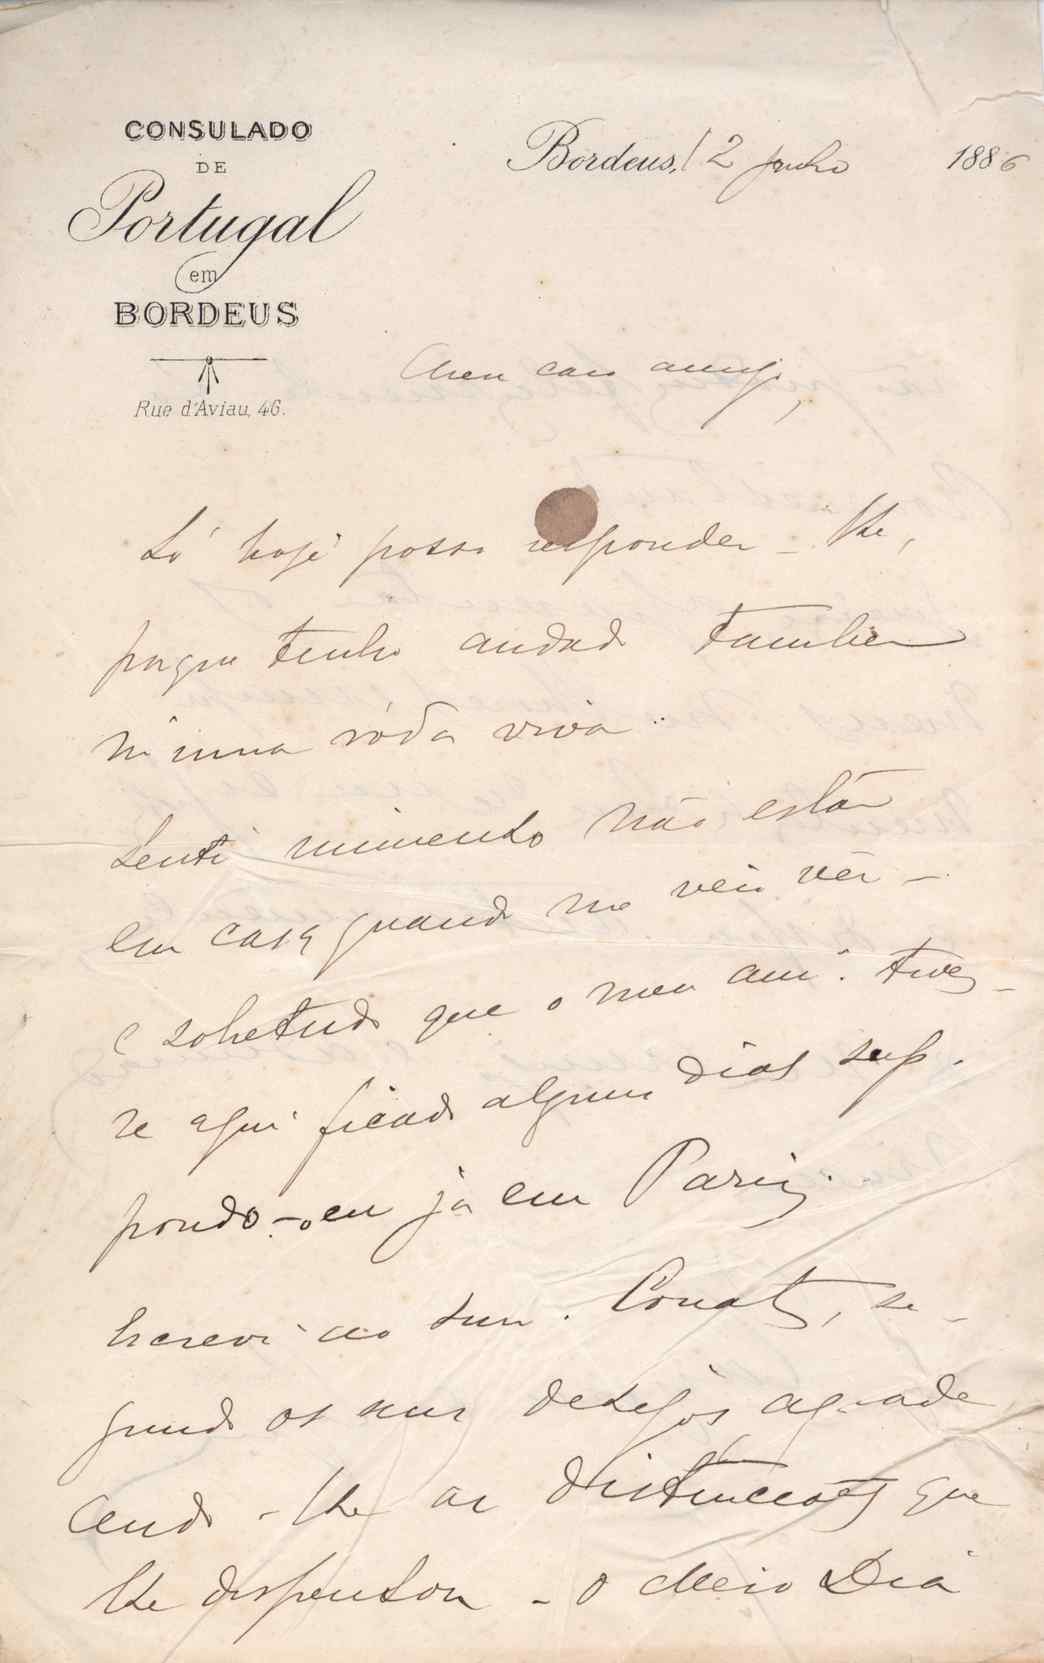 CONSULADO
DE
Portugal
em
BORDEUS
Rue d'Aviau, 46.
Bordeus, 12 junho 1886
Meu caro amigo,
Só hoje posso responder-lhe,
porque tenho andado tambem
n'uma róda viva
Senti immenso não estár
em casa quando me veiu vêr -
e sobretudo que o meu am.º tives-
se aqui ficado alguns dias sup-
pondo-o eu já em Pariz.
Escrevi ao snr. Conat, se-
gundo os seus desejos agrade
cendo-lhe as distincções que
lhe dispensou - O Meio Dia